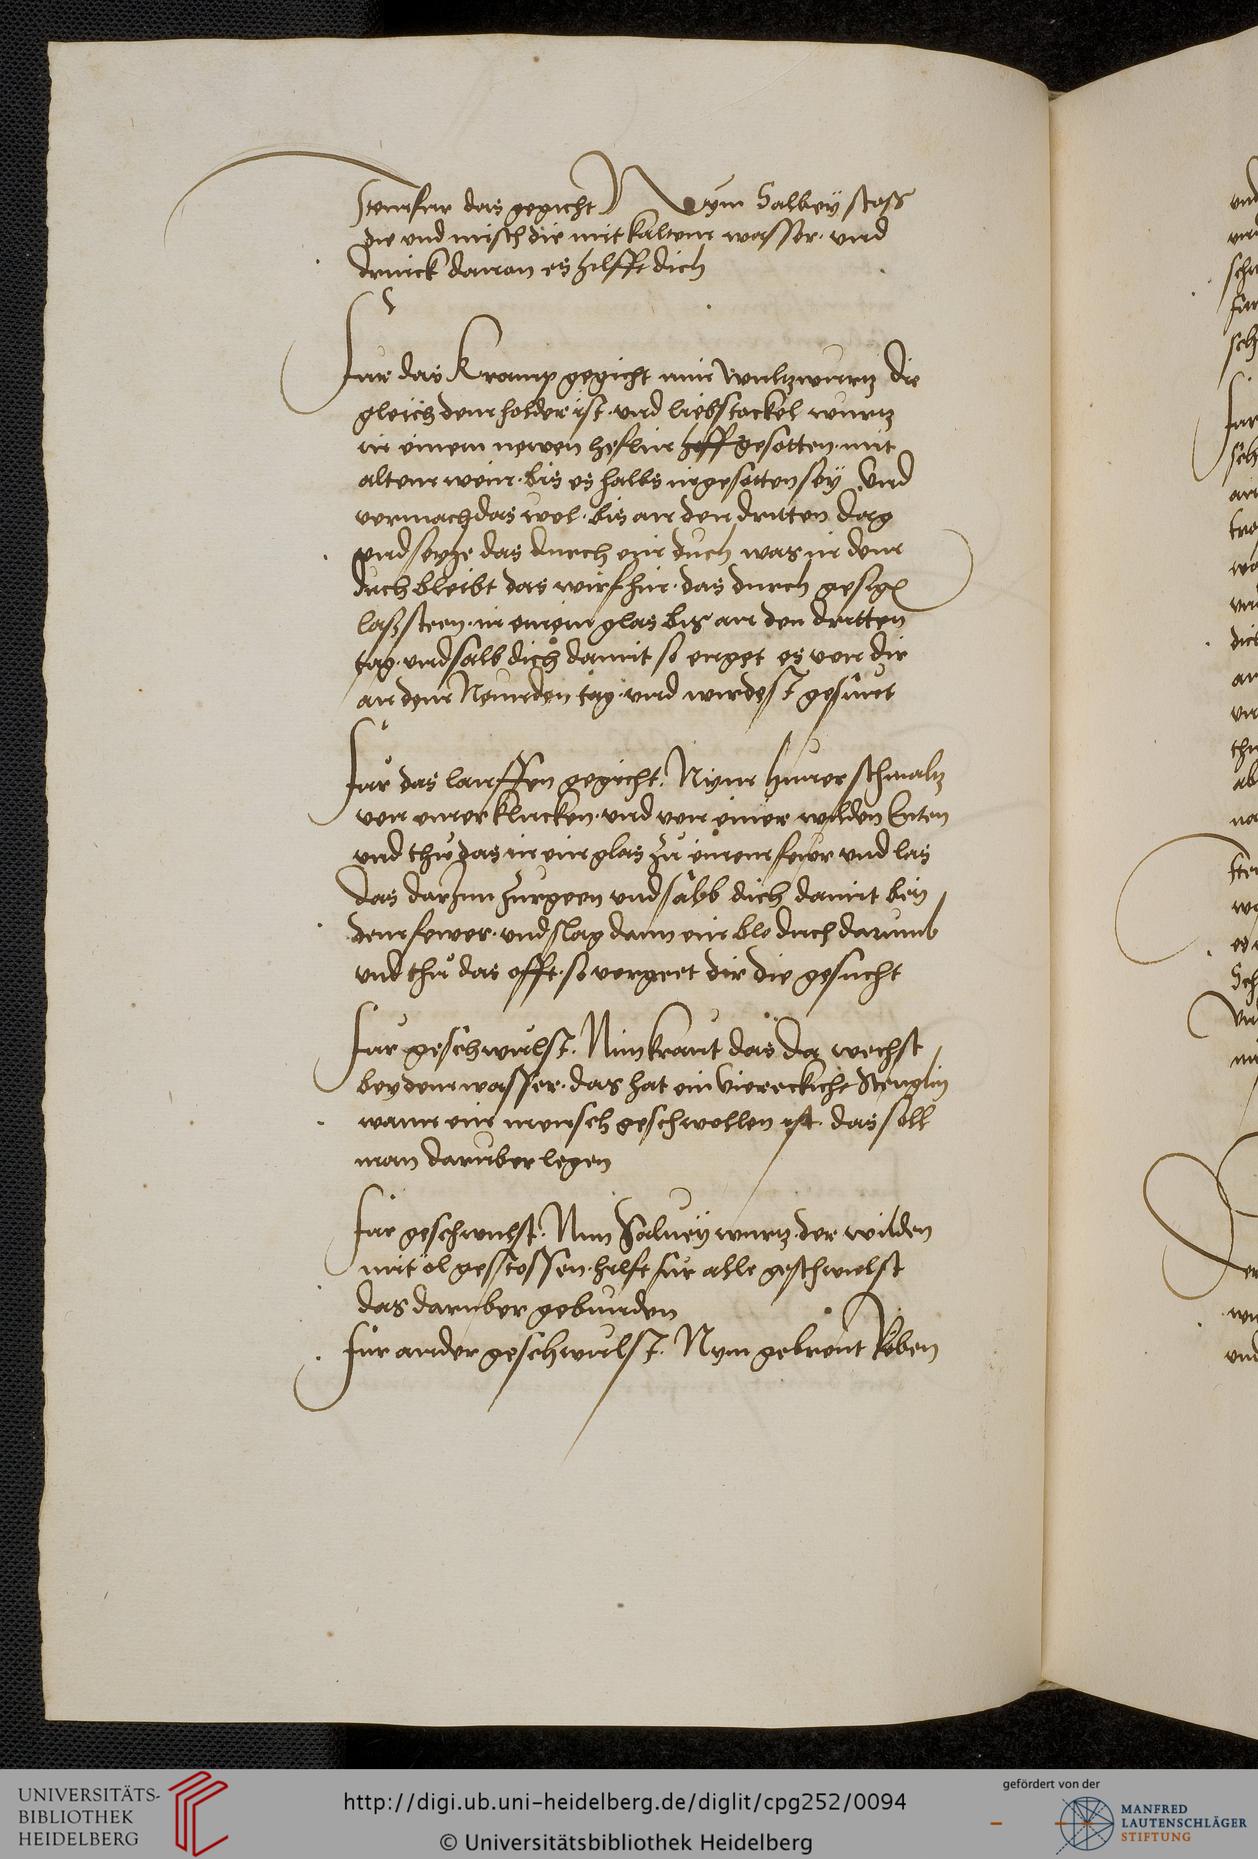 Item fur das gegicht Nym Salbey stoss
die vnd misch die mit kaltem wasser. vnd
drinck dauon es hilfft dich
Fur das kramp gegicht nim wultzwurtz die
gleich dem holder ist vnd liebstockel wurtz
in einem newen heflin gesotten mit
altem wein. bis es halbs ingesotten sey Vnd
vermach das wol. bis an den dritten dag
vnd seyhe das durch ein duch was in dem
duch bleibt das wirf hin. das durch gesigen
lasz steen. in einem glas bis an den dritten
tag. vnd salb dich damit so erget es von dir
an dem Neunden tag. vnd wirdest gesunt
Fur das lauffen gegicht. Nym huner schmaltz
von einer klucken. vnd von einer wilden Enten
vnd thu das in ein glas zu einem feuer vnd las
das darInn zurgeen vnd salb dich damit bey
dem fewer. vnd slag dann ein blo duch darumb
vnd thu das offt. so vergeet dir die gesucht
Fur geschwulst. Nim kraut das da wechst
bey dem wasser. das hat ein viereckicht Stenglin
wann ein mensch geschwollen ist. das soll
man daruber legen
Fur geschwulst. Nim Saluey wurtz der wilden
mit ol gestossen. hilft fur alle geschwulst
das daruber gebunden
Fur ander geschwulst. Nym gebrent Reben
UNIVERSITÄTS-
BIBLIOTHEK
HEIDELBERG
http://digi.ub.uni-heidelberg.de/diglit/cpg252/0094
© Universitätsbibliothek Heidelberg
gefördert von der
MANFRED
LAUTENSCHLÄGER
STIFTUNG